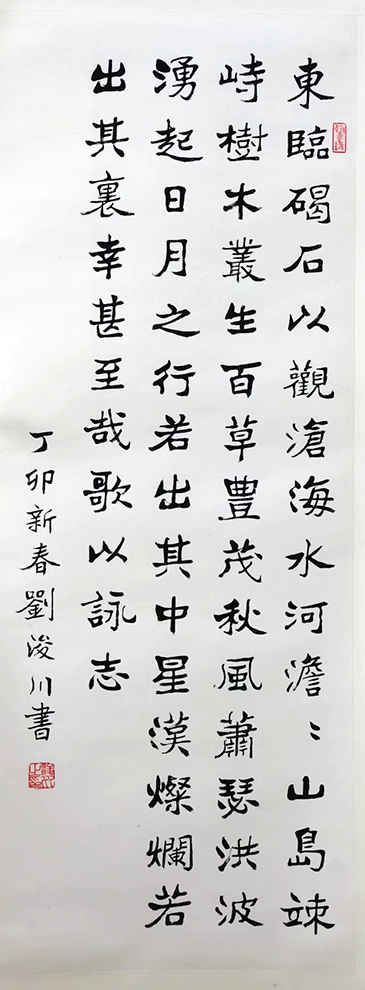 東臨碣石以觀滄海水河澹〻山島竦
峙樹木叢生百草豊茂秋風蕭瑟洪波
湧起日月之行若出其中星漢燦爛若
出其裏幸甚至哉歌以詠志
丁卯新春劉浚川書